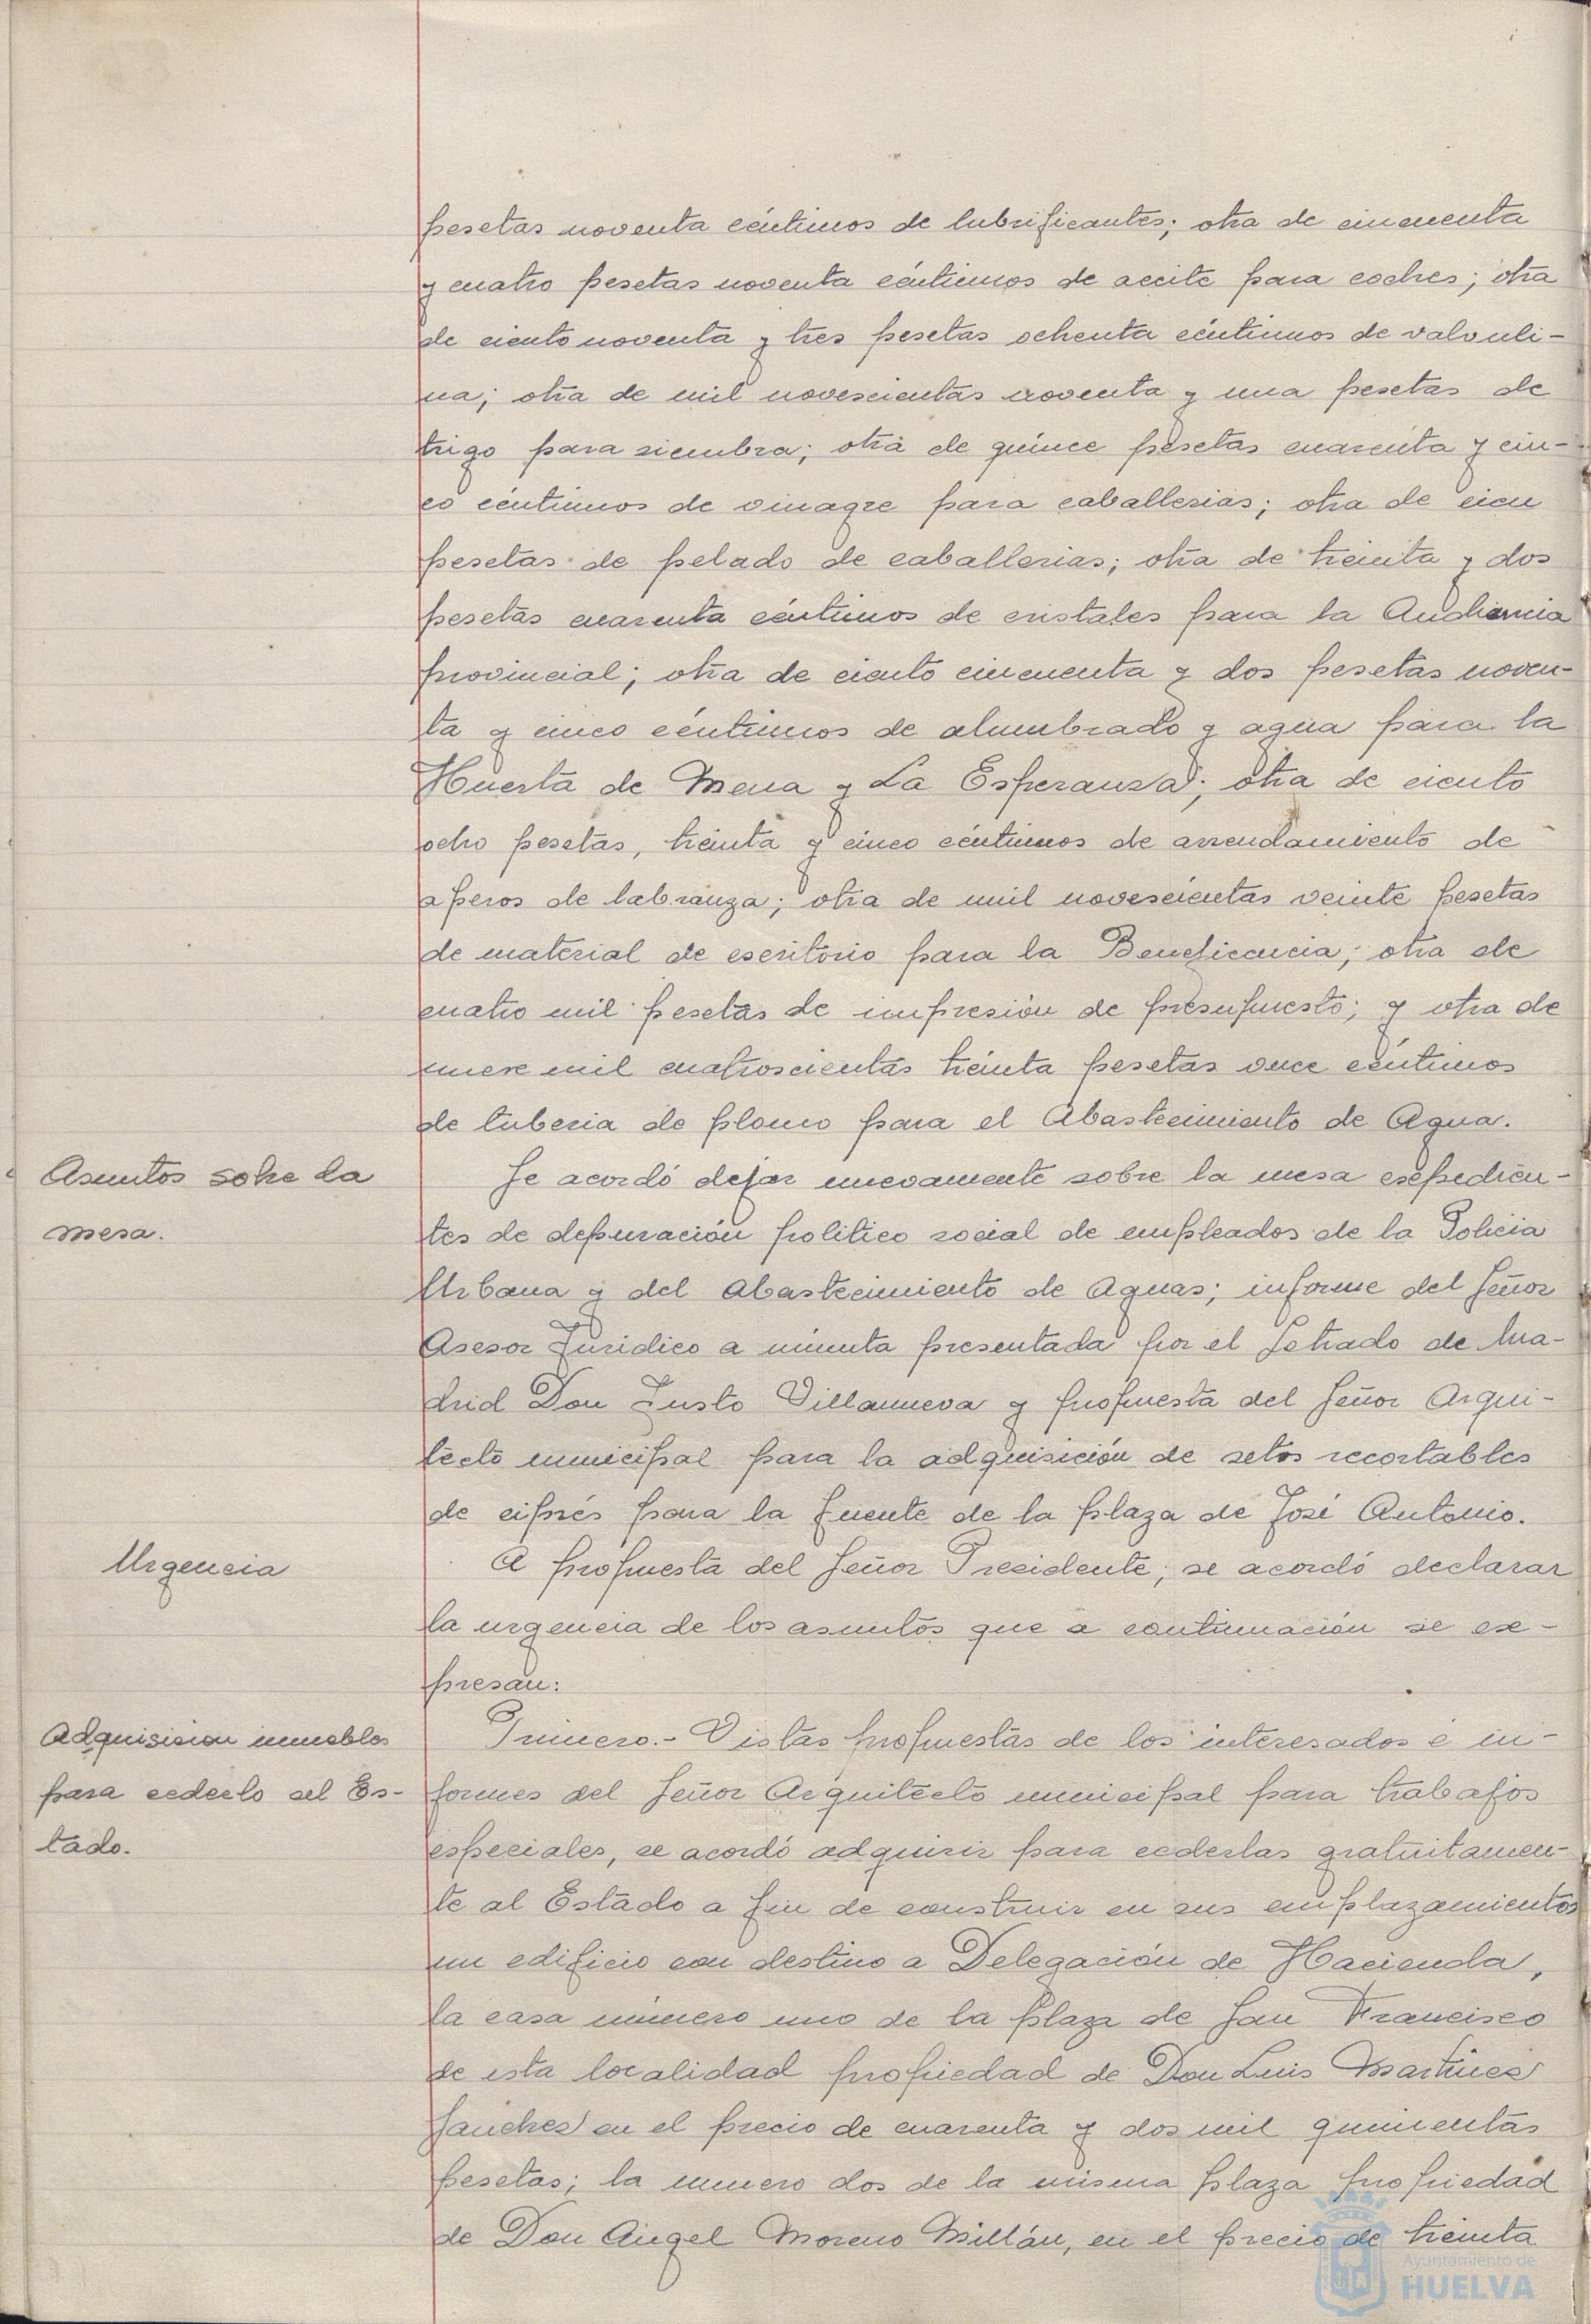 pesetas noventa céntimos de lubrificantes; otra de cincuenta
y cuatro pesetas noventa céntimos de aceite para coches; otra
de ciento noventa y tres pesetas ochenta céntimos de valvuli-
na; otra de mil novescientas noventa y una pesetas de
trigo para siembra; otra de quince pesetas cuarenta y cin-
co céntimos de vinagre para caballerias; otra de cien
pesetas de pelado de caballerias; otra de treinta y dos
pesetas cuarenta céntimos de cristales para la Audiencia
provincial; otra de ciento cincuenta y dos pesetas noven-
ta y cinco céntimos de alumbrado y agua para la
Huerta de Mena y La Esperansa; otra de ciento
ocho pesetas, treinta y cinco céntimos de arrendamiento de
aperos de labranza; otra de mil novescientas veinte pesetas
de material de escritorio para la Beneficencia; otra de
cuatro mil pesetas de impresión de presupuesto; y otra de
nueve mil cuatroscientas treinta pesetas once céntimos
de tuberia de plomo para el Abastecimiento de Agua.
Asuntos sobre la
mesa.
Se acordó dejar nuevamente sobre la mesa expedien-
tes de depuración politico social de empleados de la Policia
Urbana y del Abastecimiento de Aguas; informe del Señor
Asesor Juridico a minuta presentada por el Letrado de Ma-
drid Don Justo Villanueva y propuesta del Señor Arqui-
tecto municipal para la adquisición de setos recortables
de ciprés para la fuente de la plaza de José Antonio.
Urgencia
A propuesta del Señor Presidente, se acordó declarar
la urgencia de los asuntos que a continuación se ex-
presan:
Adquisision inmuebles
para cederlo al Es-
tado.
Primero.- Vistas propuestas de los interesados é in-
formes del Señor Arquitecto municipal para trabajos
especiales, se acordó adquirir para cederlas gratuitamen-
te al Estado a fin de construir en sus emplazamientos
un edificio con destino a Delegación de Hacienda,
la casa número uno de la plaza de San Francisco
de esta localidad propiedad de Don Luis Martines
Sanches en el precio de cuarenta y dos mil quinientas
pesetas; la numero dos de la misma plaza propiedad
de Don Angel Moreno Millán, en el precio de treinta
Ayuntamiento de
HUELVA